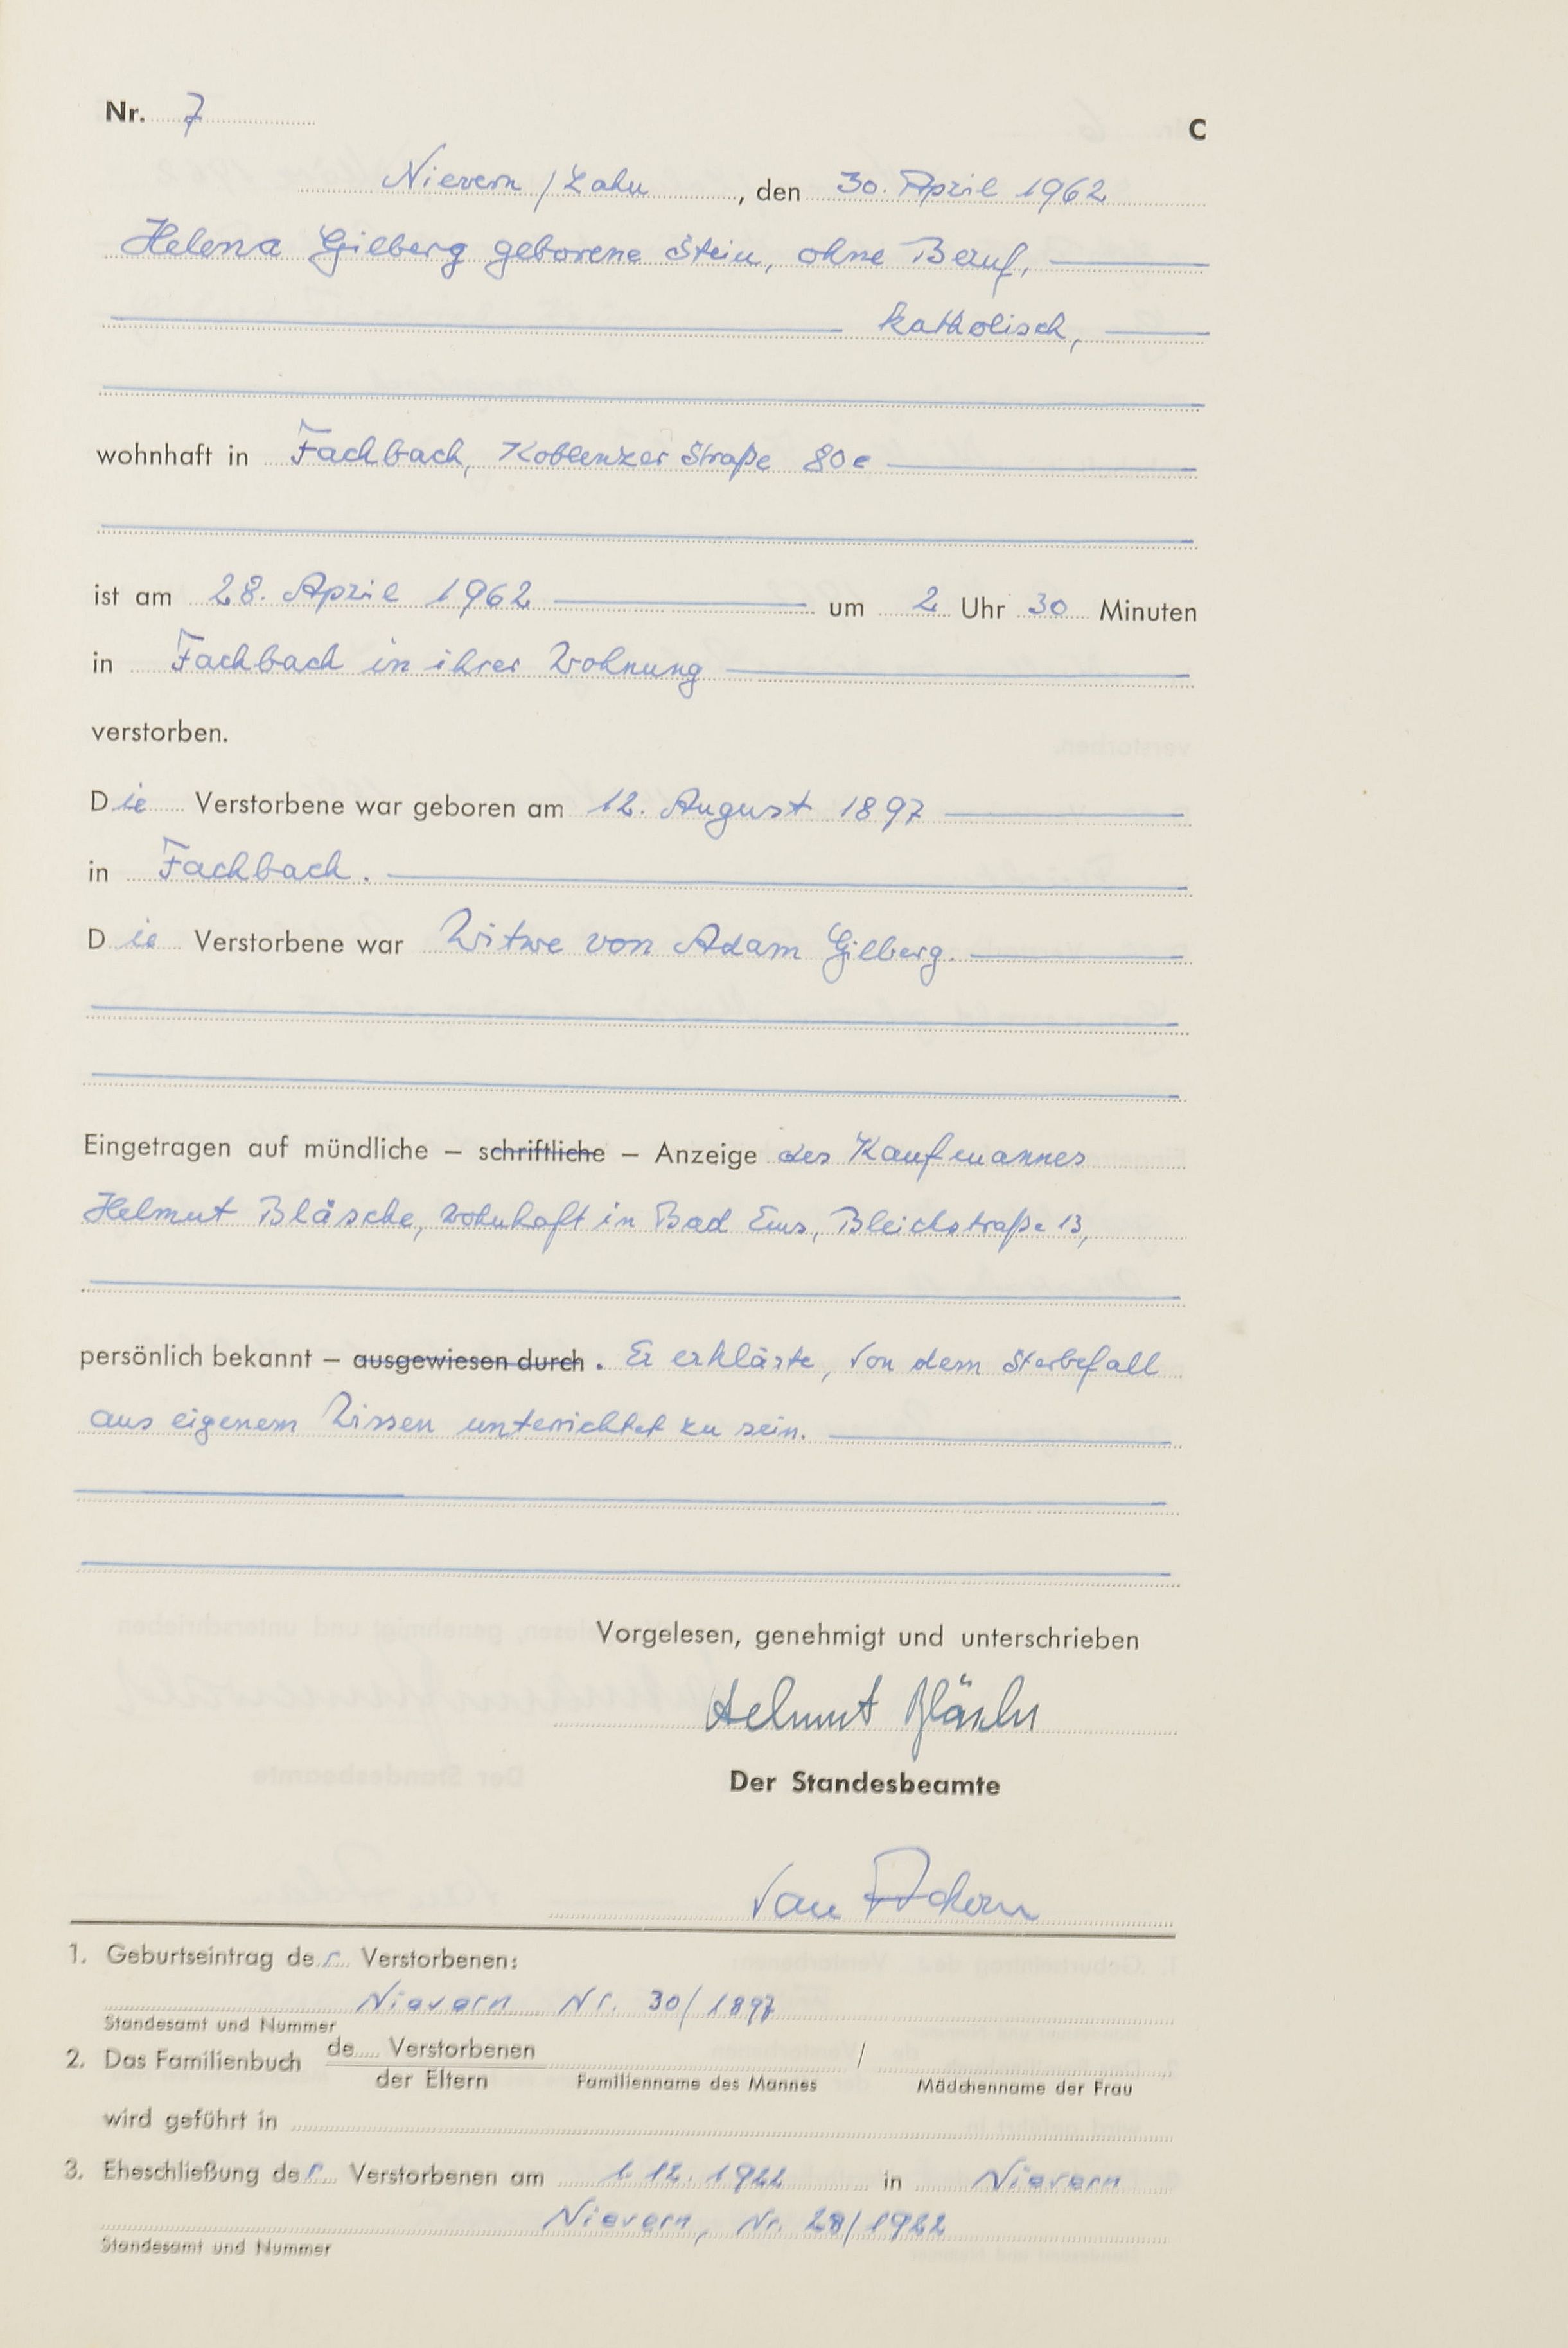 Nr. 7
C
Nievern / Lahn, den 30. April 1962
Helena Gilberg geborene Stein, ohne Beruf,
katholisch,
wohnhaft in Fachbach, Koblenzer Straße 80e
ist am 28. April 1962 um 2 Uhr 30 Minuten
in Fachbach in ihrer Wohnung
verstorben.
Die Verstorbene war geboren am 12. August 1897
in Fachbach.
Die Verstorbene war Witwe von Adam Gilberg.
Eingetragen auf mündliche – schriftliche – Anzeige des Kaufmannes
Helmut Bläsche, wohnhaft in Bad Ems, Bleichstraße 13,
persönlich bekannt – ausgewiesen durch. Er erklärte, von dem Sterbefall
aus eigenem Wissen unterrichtet zu sein.
Vorgelesen, genehmigt und unterschrieben
Helmut Bläsche
Der Standesbeamte
Van
1. Geburtseintrag der Verstorbenen:
Nievern Nr. 30/1897
Standesamt und Nummer
2. Das Familienbuch de Verstorbenen /
der Eltern Familienname des Mannes Mädchenname der Frau
wird geführt in
3. Eheschließung der Verstorbenen am 1. 12. 1922 in Nievern
Nievern, Nr. 28/1922
Standesamt und Nummer